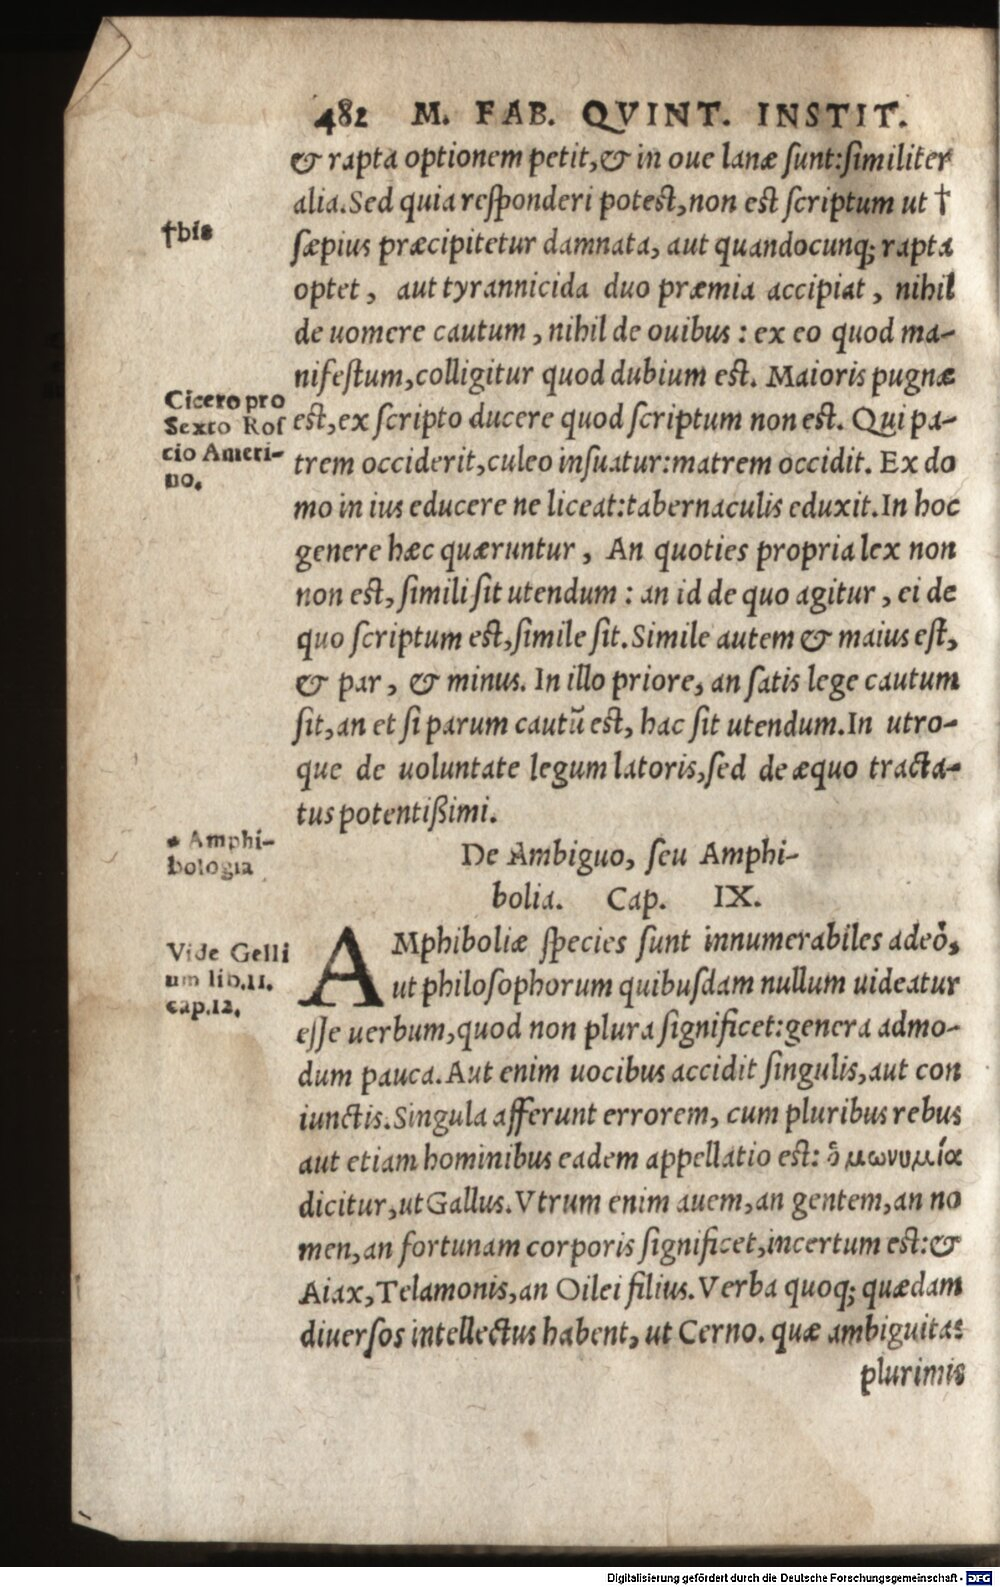 482 M. FAB. QVINT. INSTIT.
& rapta optionem petit,& in oue lanæ ſunt:ſimiliter
alia.Sed quia reſponderi poteſt,non eſt ſcriptum ut †
†bis
ſæpius præcipitetur damnata, aut quandocunq; rapta
optet, aut tyrannicida duo præmia accipiat, nihil
de uomere cautum, nihil de ouibus: ex eo quod ma-
nifeſtum,colligitur quod dubium eſt. Maioris pugnæ
Cicero pro
Sexto Roſ
cio Ameri-
no.
eſt,ex ſcripto ducere quod ſcriptum non eſt. Qui pa-
trem occiderit,culeo inſuatur:matrem occidit. Ex do
mo in ius educere ne liceat:tabernaculis eduxit.In hoc
genere hæc quæruntur, An quoties propria lex non
non eſt, ſimili ſit utendum: an id de quo agitur, ei de
quo ſcriptum eſt,ſimile ſit.Simile autem & maius eſt,
& par, & minus. In illo priore, an ſatis lege cautum
ſit,an et ſi parum cautũ eſt, hac ſit utendum.In utro-
que de uoluntate legum latoris,ſed de æquo tracta-
tus potentißimi.
* Amphi-
bologia
De Ambiguo, ſeu Amphi-
bolia. Cap. IX.
Vide Gelli
um lib.11.
cap.12.
AMphiboliæ ſpecies ſunt innumerabiles adeò,
ut philoſophorum quibuſdam nullum uideatur
eſſe uerbum,quod non plura ſignificet:genera admo-
dum pauca.Aut enim uocibus accidit ſingulis,aut con
iunctis.Singula afferunt errorem, cum pluribus rebus
aut etiam hominibus eadem appellatio eſt: ὁμωνυμία
dicitur,ut Gallus.Vtrum enim auem,an gentem,an no
men,an fortunam corporis ſignificet,incertum eſt:&
Aiax,Telamonis,an Oilei filius.Verba quoq; quædam
diuerſos intellectus habent, ut Cerno. quæ ambiguitas
plurimis
Digitalisierung gefördert durch die Deutsche Forschungsgemeinschaft - DFG